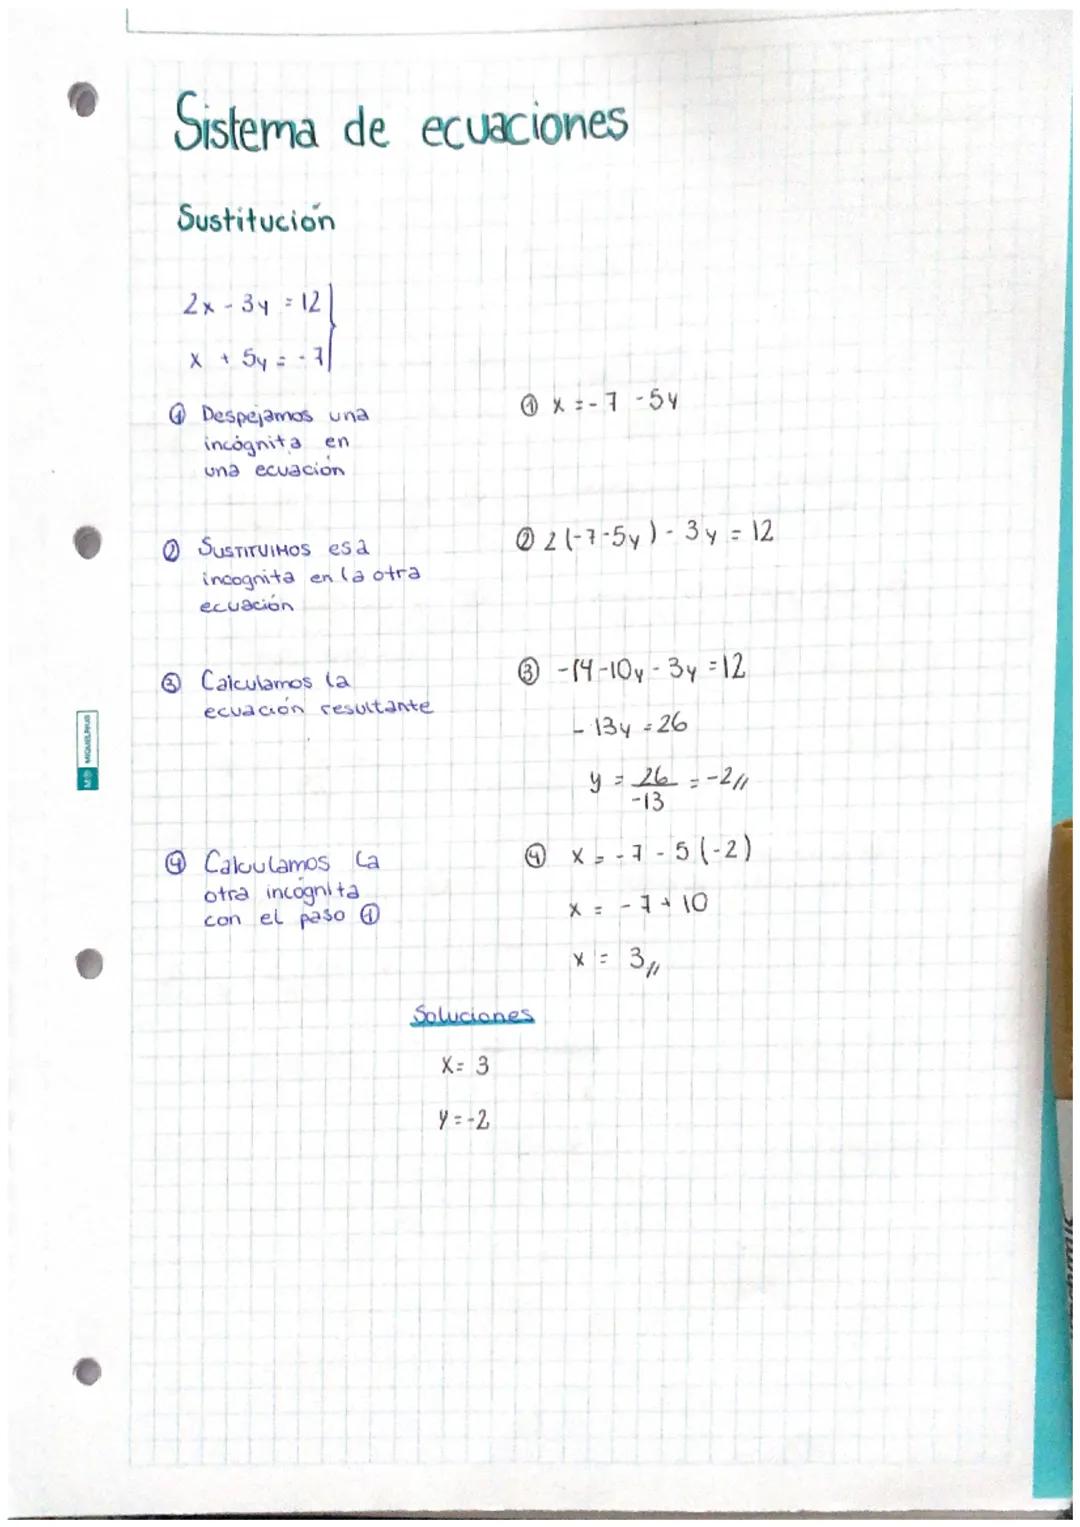 Sistema de ecuaciones
Sustitución
2x - 3y = 12
x + 5y = -7
① Despejamos una
incógnita en
una ecuación
① x = -7 - 5y
② SUSTITUIMOS esa
incognita en la otra
ecuación
② 2(-7-5y) - 3y = 12
③ Calculamos la
ecuación resultante
③ -14-10y - 3y = 12
- 13y = 26
y = 26/-13 = -2//
④ Calculamos la
otra incógnita
con el paso ①
④ x = -7 - 5(-2)
x = -7 + 10
x = 3//
Soluciones
x = 3
y = -2
MIQUELRIUS